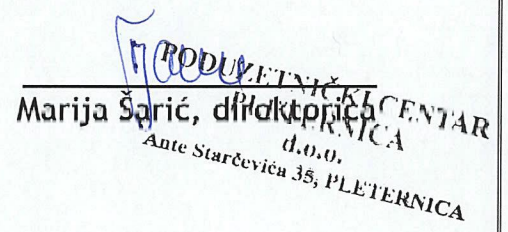 Marija Šarić, direktorica
PODUZETNIČKI CENTAR
PLETERNICA
d.o.o.
Ante Starčevića 35, PLETERNICA